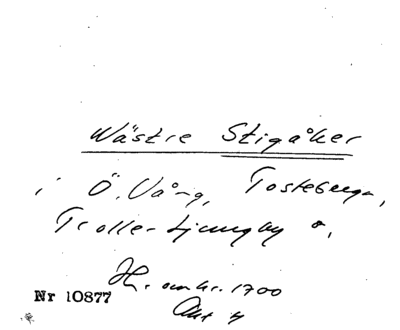 Wästre Stigåker
i Ö. Vång, Tosteberga,
Trolle-Ljungby s.
Hr. omkr. 1700
Nr 10877